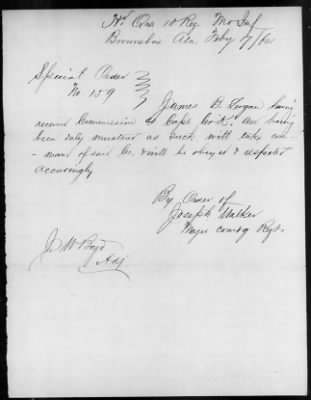 Hd Qrs 10 Reg Mo Inf
Brownsboro Ala Feby 17/64
Special Order
No 159
James D. Logan having
receivd Commission as Capt Co "
and having
been duly mustered as such will take com
- mand of said Co. & will be obeyed & respected
accordingly
By Order of
Joseph Walker
Major comdg Regt.
J. W. Boyd
Adj